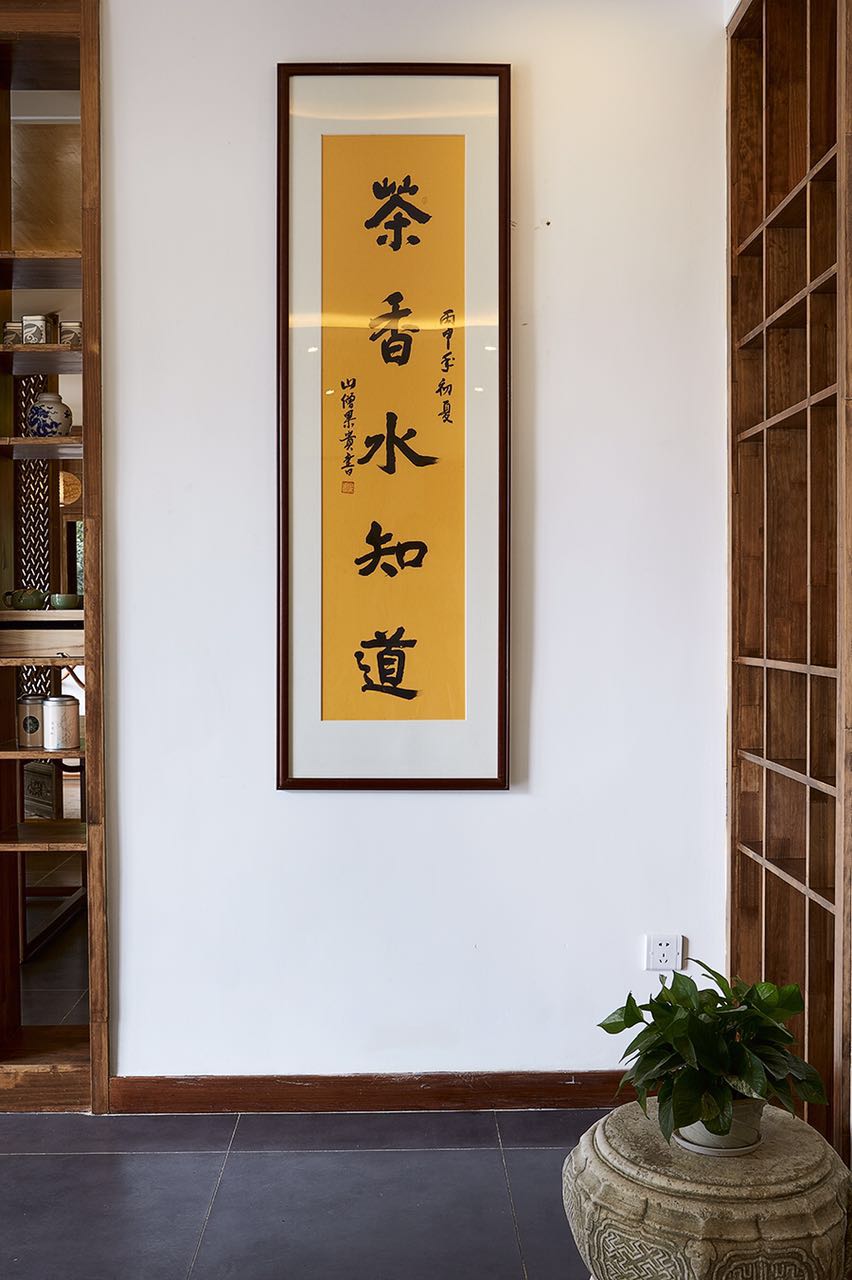 茶香水知道
丙申年初夏
山僧果贵書